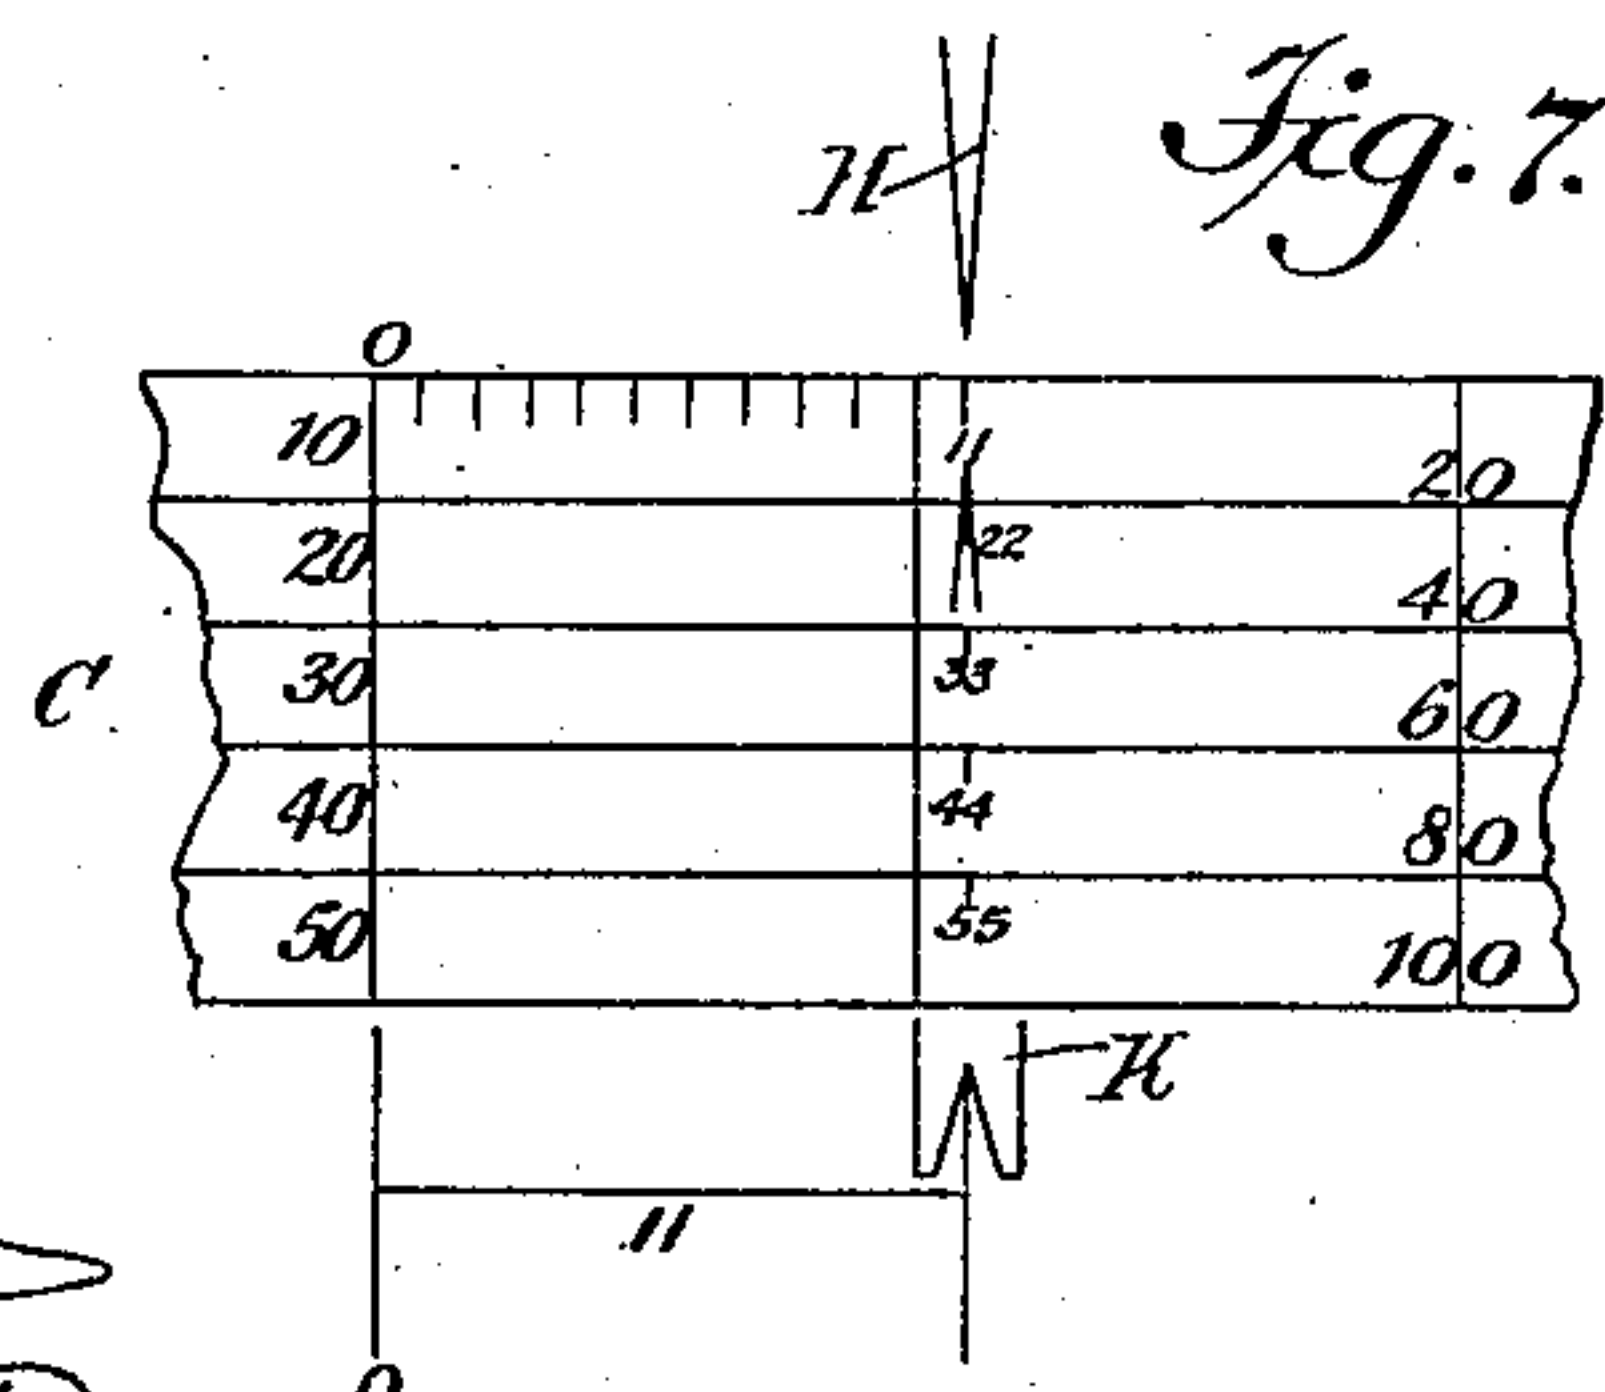 Fig. 7.
H
0
10 11 20
20 22 40
C 30 33 60
40 44 80
50 55 100
K
11
0